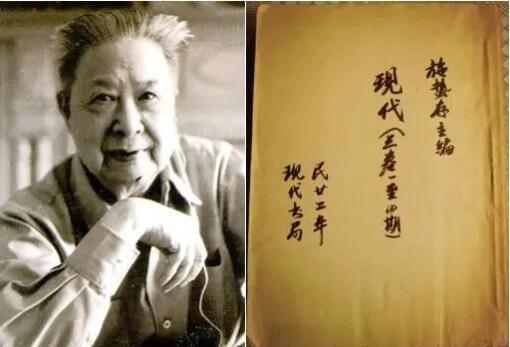 施蛰存主编
现代（三卷一至四期）
民廿二年
现代书局